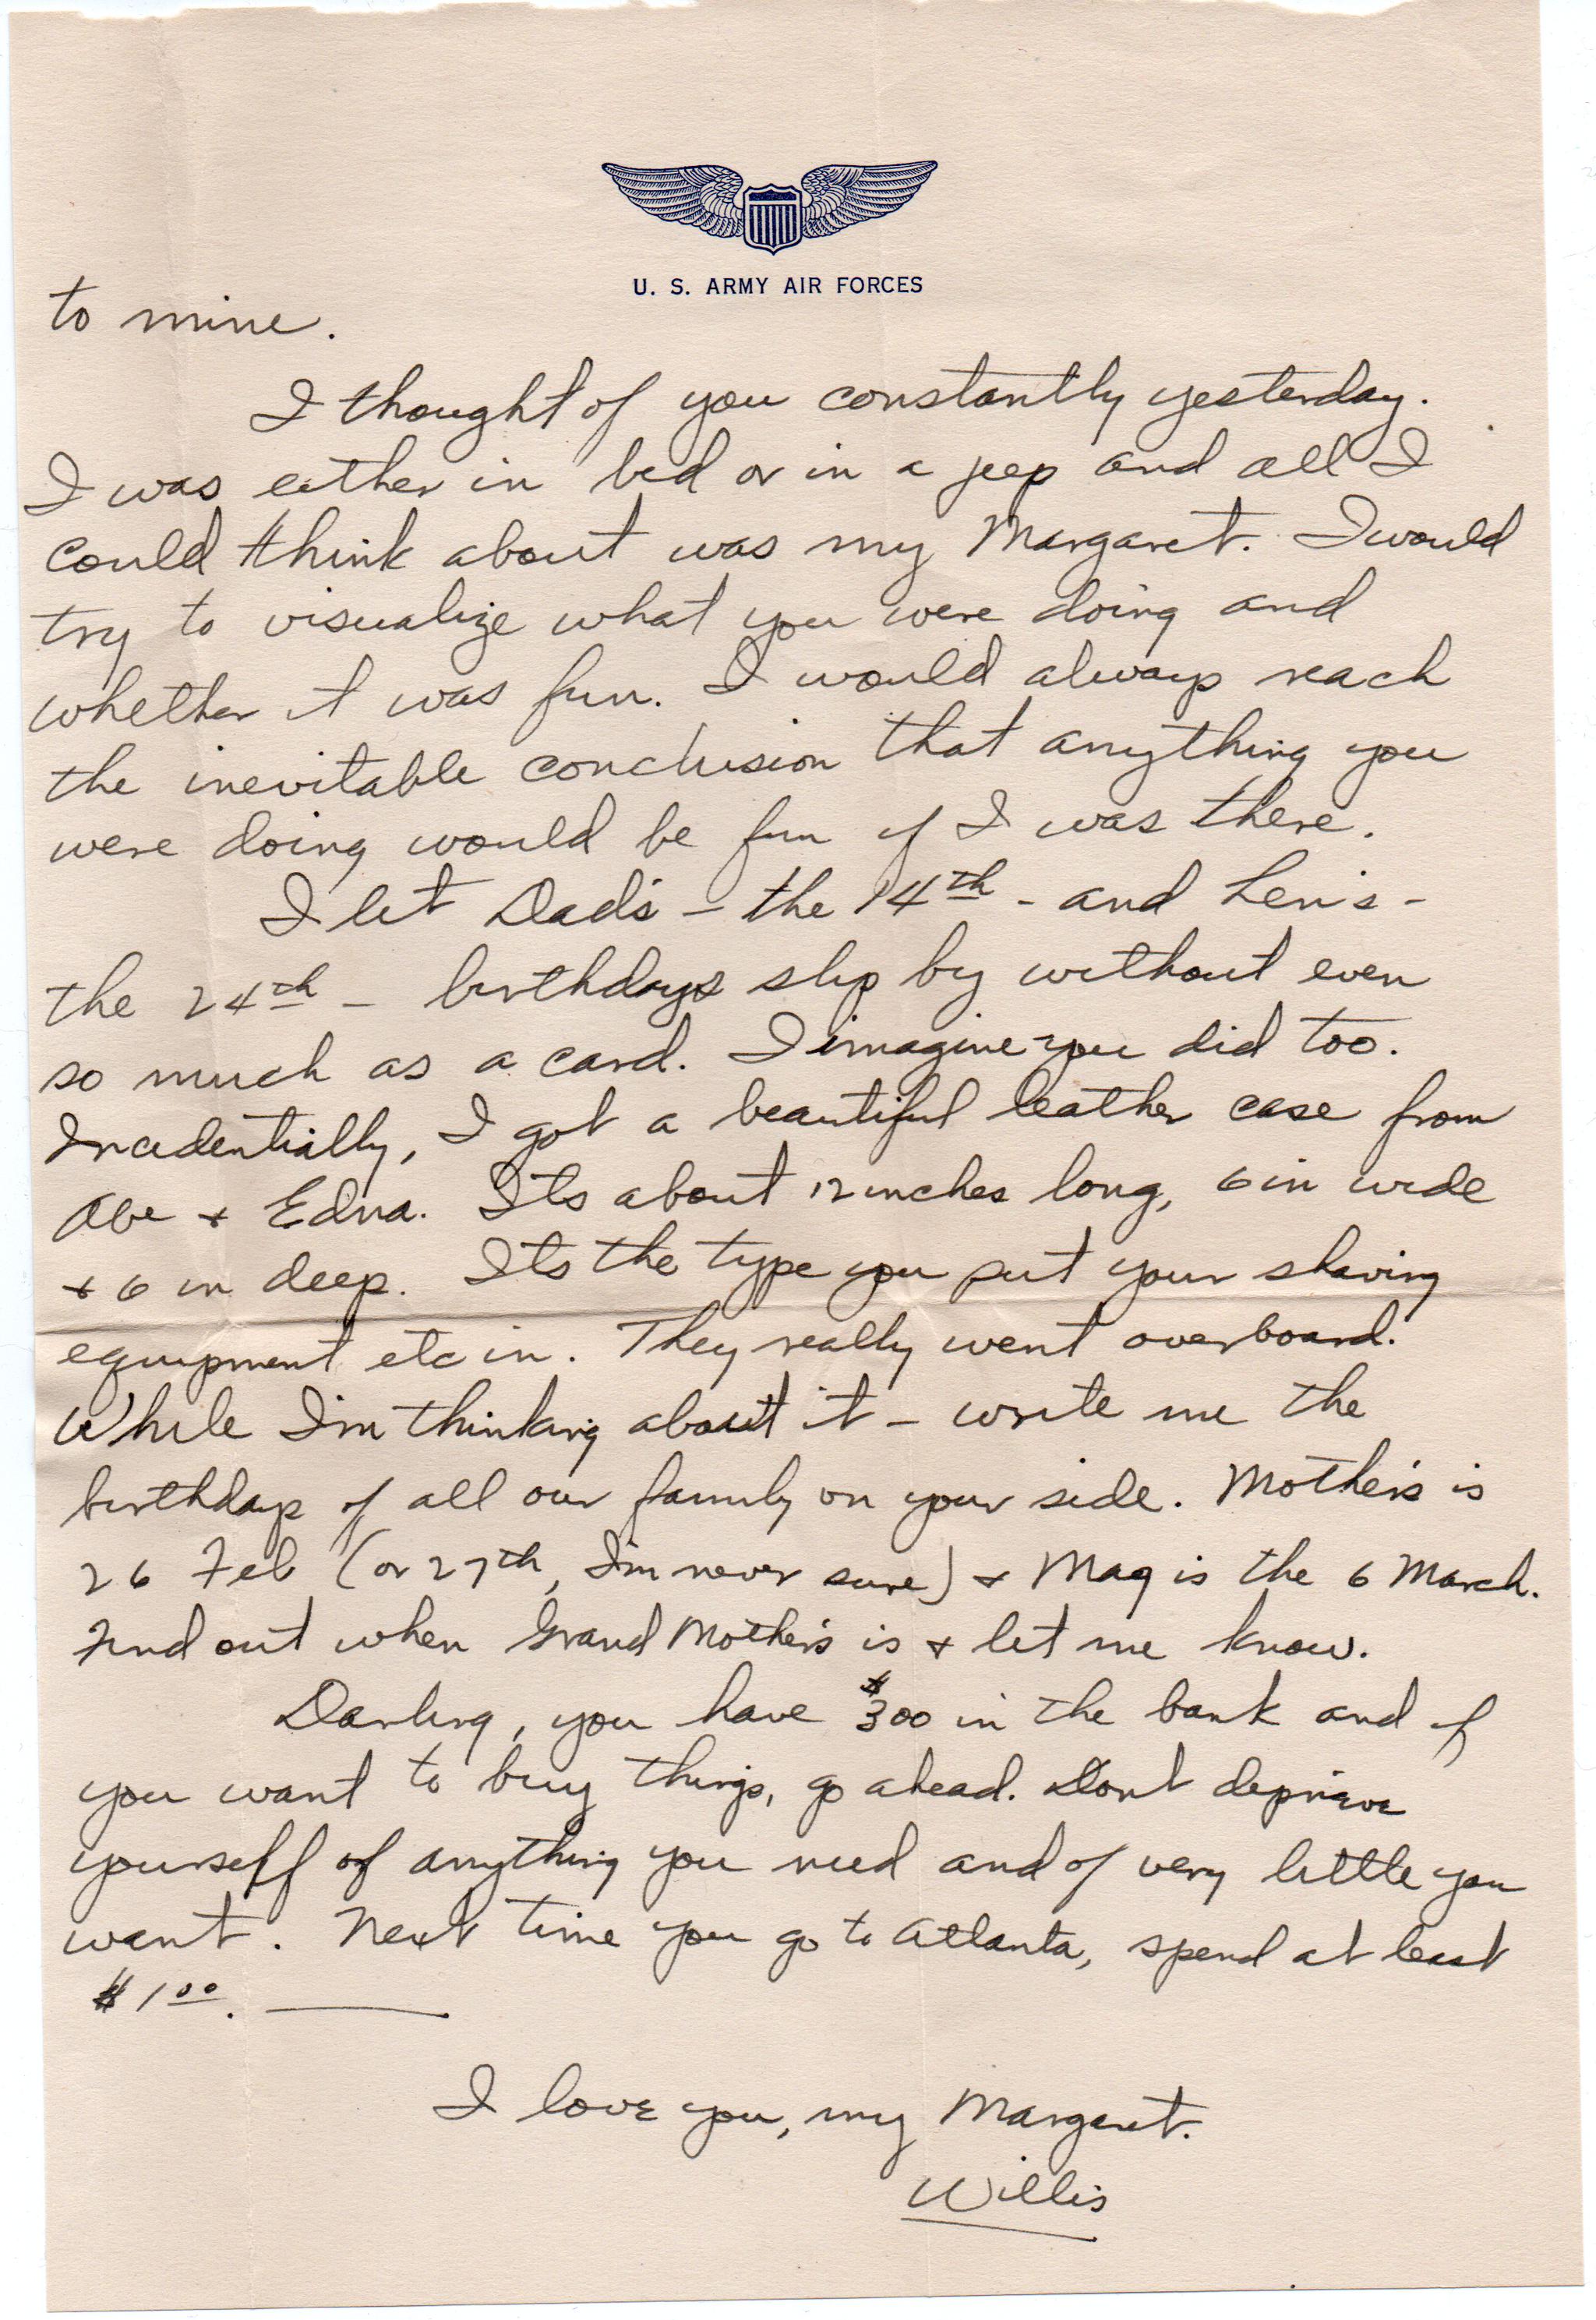 U. S. ARMY AIR FORCES
to mine.
I thought of you constantly yesterday.
I was either in bed or in a jeep and all I
could think about was my Margaret. I would
try to visualize what you were doing and
whether it was fun. I would always reach
the inevitable conclusion that anything you
were doing would be fun if I was there.
I let Dad's – the 14th - and Len's -
the 24th – birthdays slip by without even
so much as a card. I imagine you did too.
Incidentially, I got a beautiful leather case from
Abe + Edna. Its about 12 inches long, 6 in wide
+ 6 in deep. Its the type you put your shaving
equipment etc in. They really went overboard.
While I'm thinking about it – write me the
birthdays of all our family on your side. Mother's is
26 Feb (or 27th, I'm never sure) + Mag is the 6 March.
Find out when Grand Mother's is + let me know.
Darling, you have $300 in the bank and if
you want to buy things, go ahead. Dont deprive
yourself of anything you need and of very little you
want. Next time you go to Atlanta, spend at least
$1.00. ———
I love you, my Margaret.
Willis